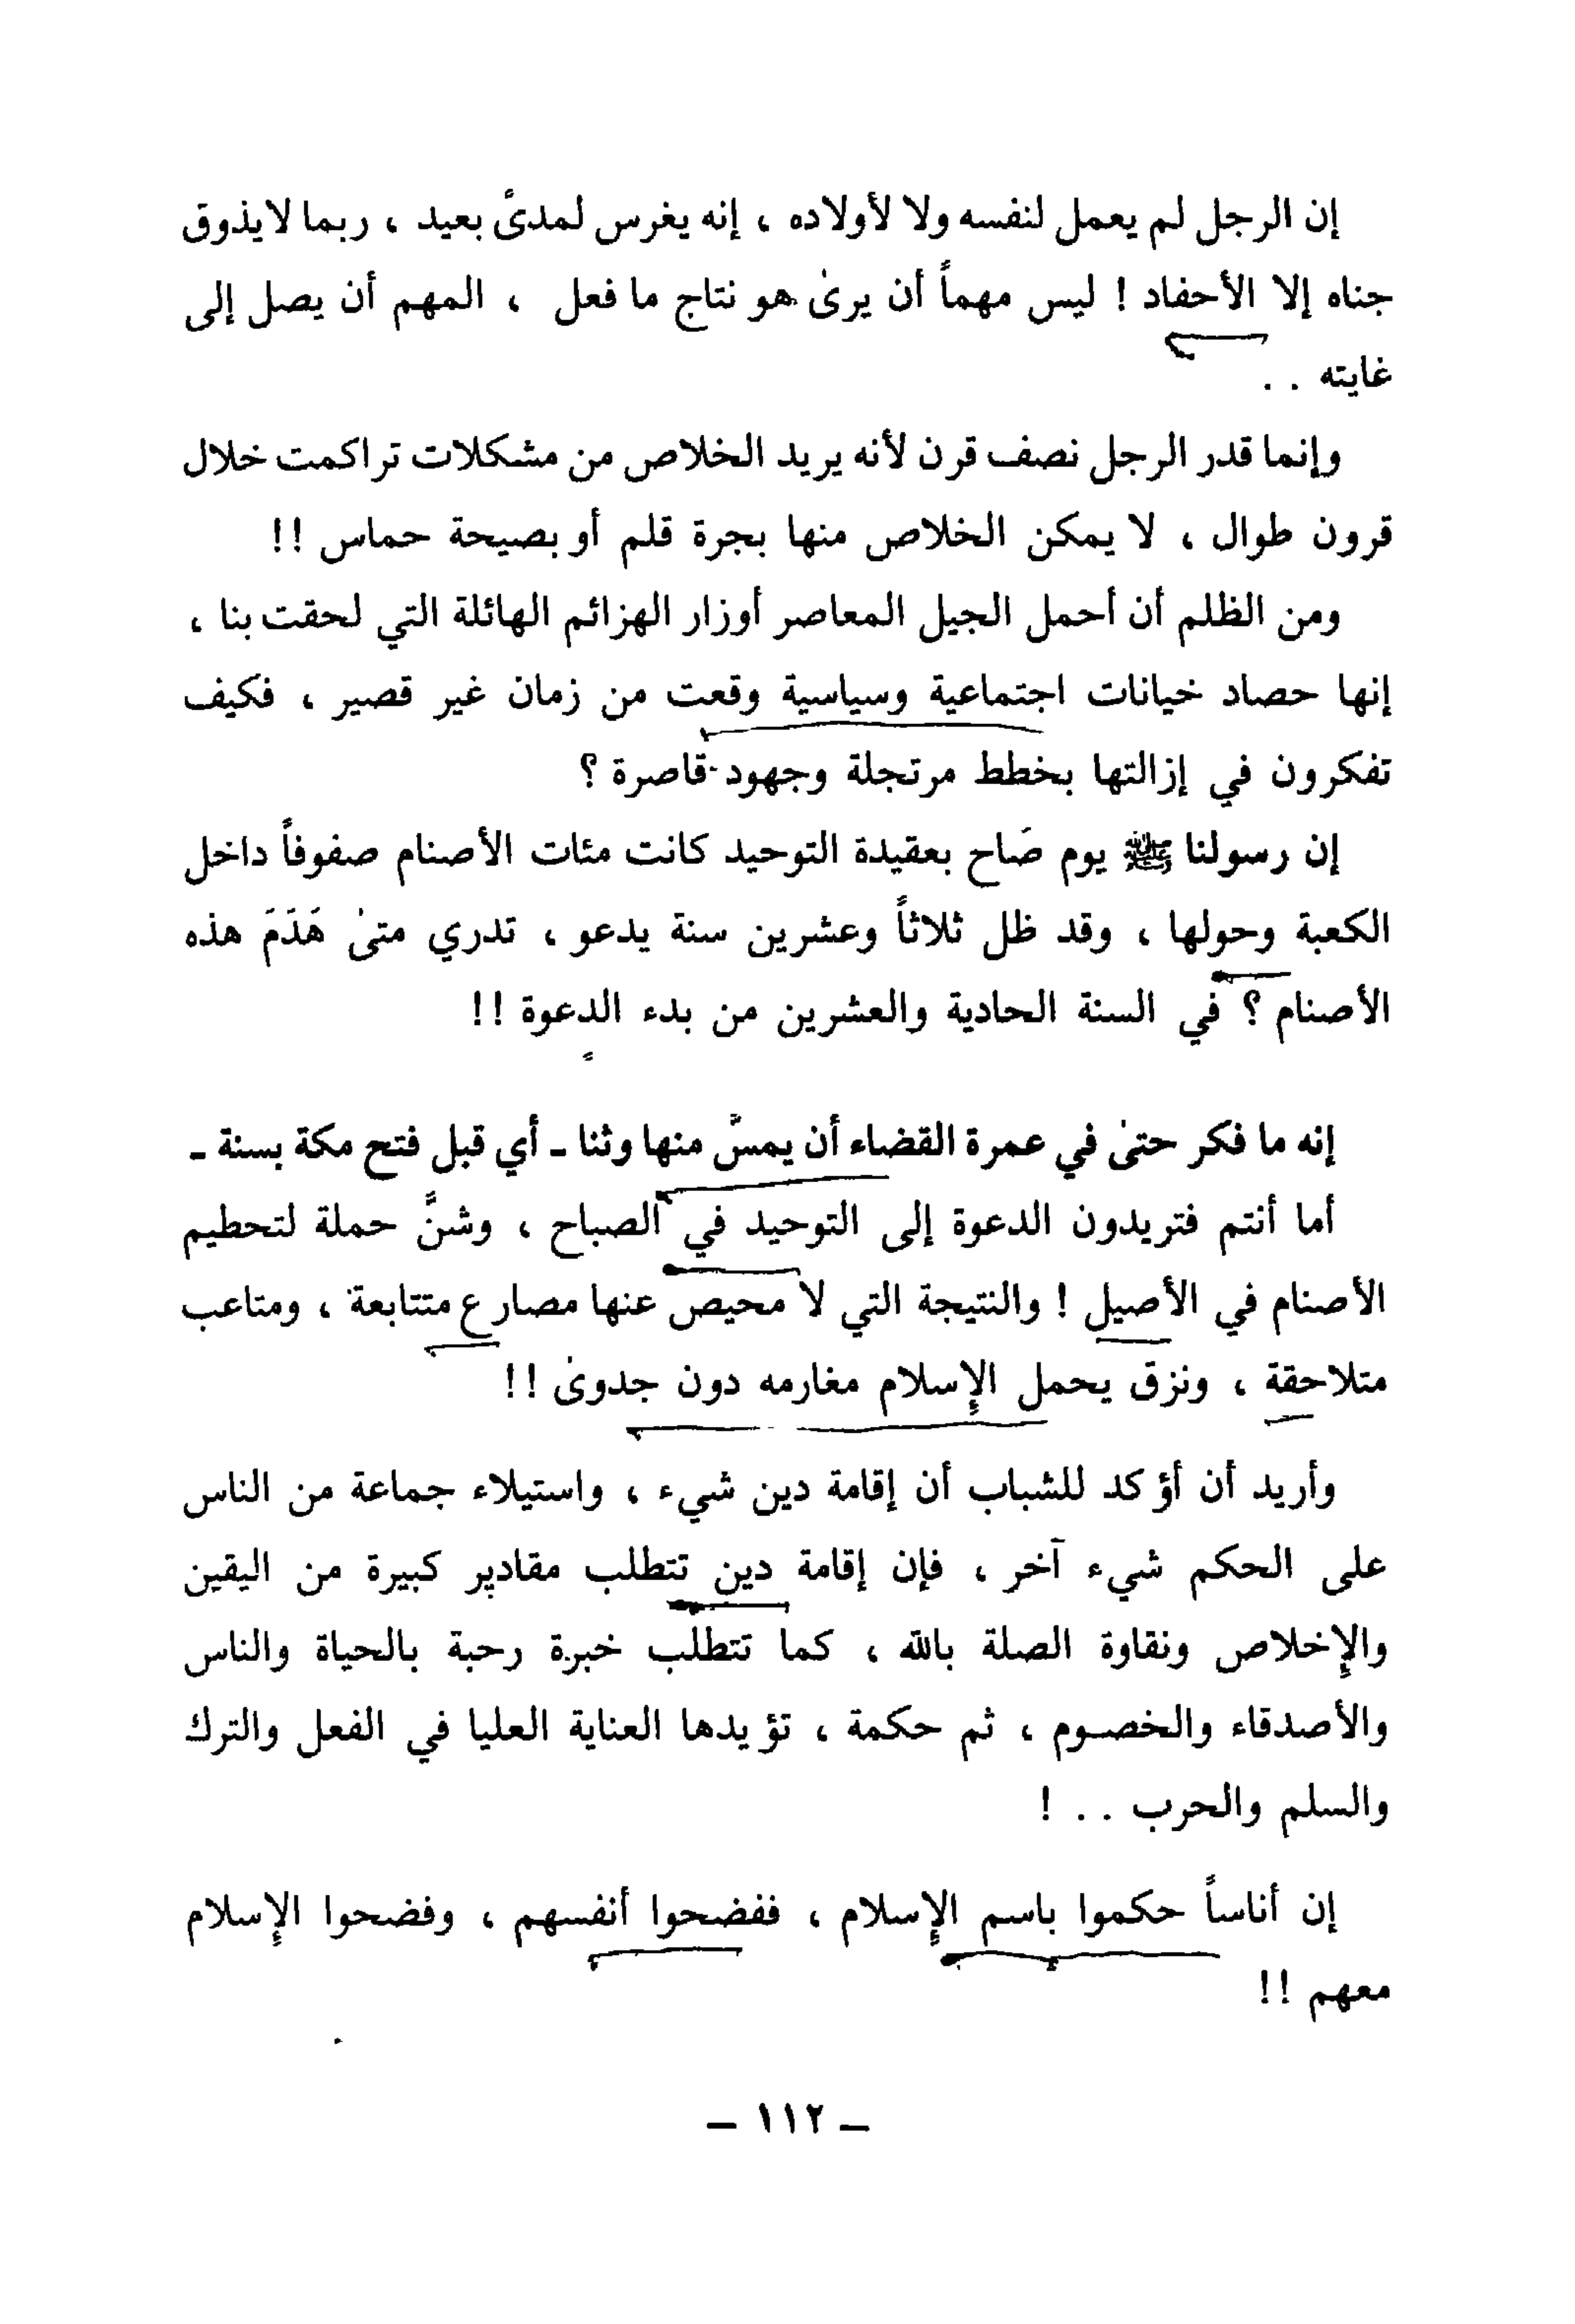 إن الرجل لم يعمل لنفسه ولا لأولاده ، إنه يغرس لمدىً بعيد ، ربما لايذوق
جناه إلا الأحفاد ! ليس مهماً أن يرىٰ هو نتاج ما فعل ، المهم أن يصل إلى
غايته . .
وإنما قدر الرجل نصف قرن لأنه يريد الخلاص من مشكلات تراكمت خلال
قرون طوال ، لا يمكن الخلاص منها بجرة قلم أو بصيحة حماس !!
ومن الظلم أن أحمل الجيل المعاصر أوزار الهزائم الهائلة التي لحقت بنا ،
إنها حصاد خيانات اجتماعية وسياسية وقعت من زمان غير قصير ، فكيف
تفكرون في إزالتها بخطط مرتجلة وجهود قاصرة ؟
إن رسولنا ﷺ يوم صَاح بعقيدة التوحيد كانت مئات الأصنام صفوفاً داخل
الكعبة وحولها ، وقد ظل ثلاثاً وعشرين سنة يدعو ، تدري متىٰ هَدَمَ هذه
الأصنام ؟ في السنة الحادية والعشرين من بدء الدعوة !!
إنه ما فكر حتىٰ في عمرة القضاء أن يمسَّ منها وثنا ـ أي قبل فتح مكة بسنة ـ
أما أنتم فتريدون الدعوة إلى التوحيد في الصباح ، وشنَّ حملة لتحطيم
الأصنام في الأصيل ! والنتيجة التي لا محيص عنها مصارع متتابعة ، ومتاعب
متلاحقة ، ونزق يحمل الإسلام مغارمه دون جدوىٰ !!
وأريد أن أؤكد للشباب أن إقامة دين شيء ، واستيلاء جماعة من الناس
على الحكم شيء آخر ، فإن إقامة دين تتطلب مقادير كبيرة من اليقين
والإخلاص ونقاوة الصلة بالله ، كما تتطلب خبرة رحبة بالحياة والناس
والأصدقاء والخصـوم ، ثم حكمة ، تؤيدها العناية العليا في الفعل والترك
والسلم والحرب . . !
إن أناساً حكموا باسم الإسلام ، ففضحوا أنفسهم ، وفضحوا الإسلام
معهم !!
ـ ١١٢ ـ